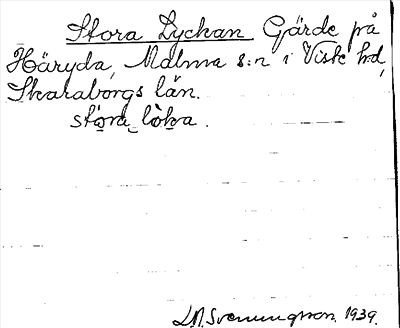 Stora Lyckan Gärde på
Häryda, Malma s:n i Viste hd,
Skaraborgs län.
stọra lòka.
Svenungsson. 1939.